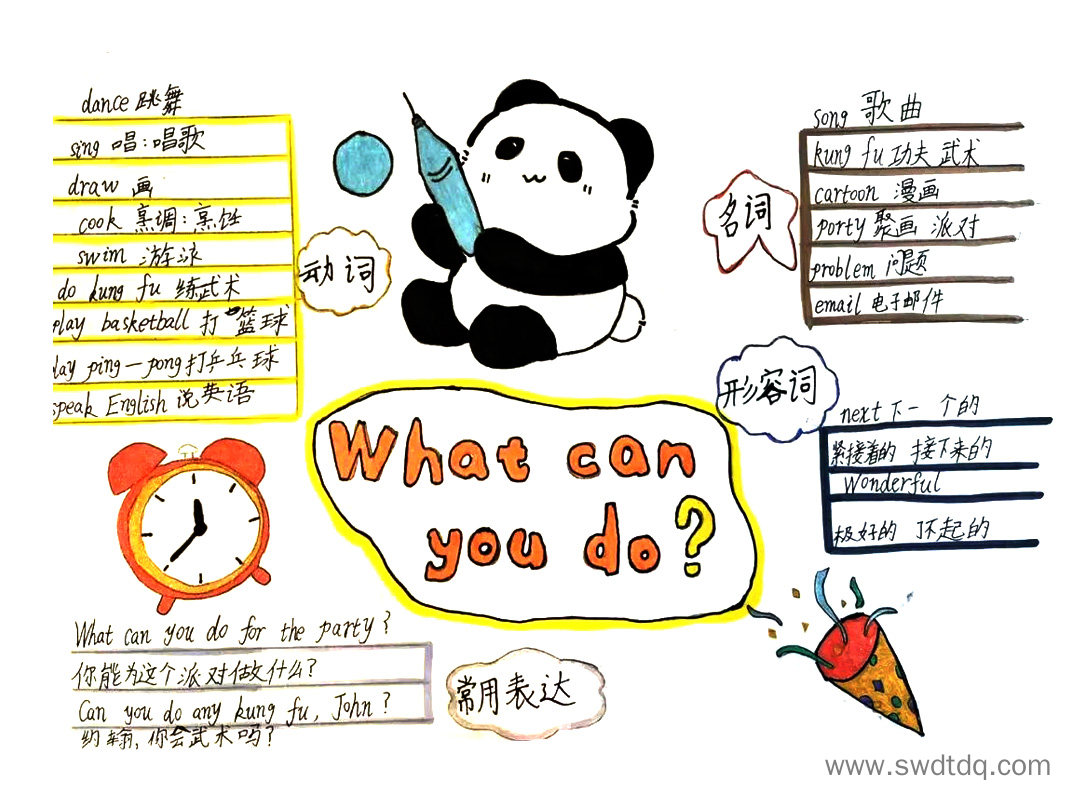 dance 跳舞
sing 唱:唱歌
draw 画
cook 烹调:烹饪
swim 游泳
do kung fu 练武术
play basketball 打篮球
lay ping-pong 打乒乓球
speak English 说英语
动词
song 歌曲
kung fu 功夫 武术
cartoon 漫画
porty 聚画 派对
problem 问题
email 电子邮件
名词
形容词
next 下一个的
紧接着的 接下来的
Wonderful
极好的 了不起的
What can
you do?
What can you do for the party?
你能为这个派对做什么?
Can you do any kung fu, John?
约翰,你会武术吗?
常用表达
www.swdtdq.com